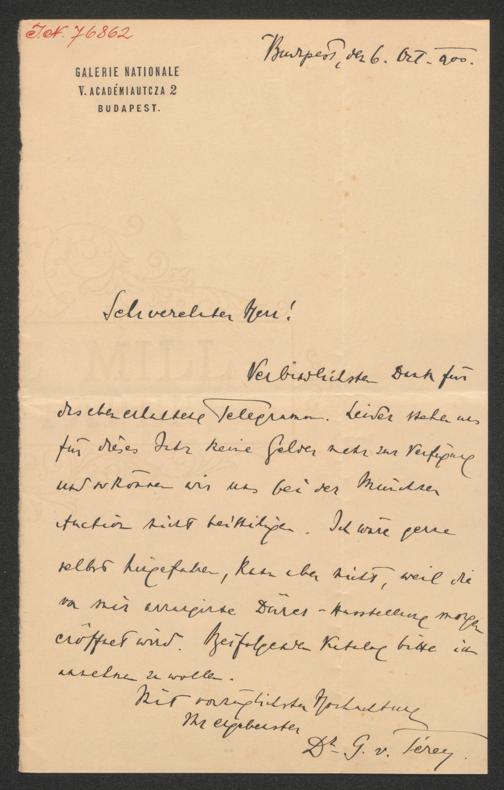 I.N. 76862
Budapest, den 6. Oct. 900.
GALERIE NATIONALE
V. ACADÉMIAUTCZA 2
BUDAPEST.
Sehr verehrter Herr!
Verbindlichsten Dank für
das eben erhaltene Telegramm. Leider stehen uns
für dieses Jahr keine Gelder mehr zur Verfügung
und so können wir uns bei der Münchner
Auction nicht beitheiligen. Ich wäre gerne
selbst hingefahren, kann aber nicht, weil die
von mir arrangirte Dürer-Ausstellung morgen
eröffnet wird. Beifolgenden Katalog bitte ich
ansehen zu wollen.
Mit vorzüglichster Hochachtung
Ihr ergebenster
Dr. G. v. Térey.